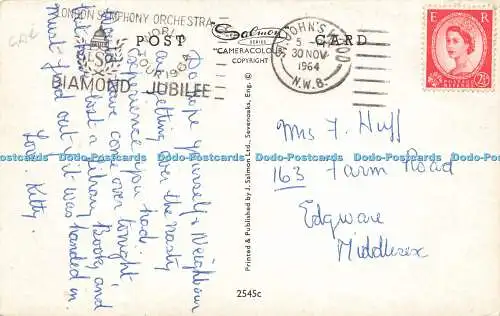 LONDON SYMPHONY ORCHESTRA
TOUR 1964
DIAMOND JUBILEE
POST
Salmon
SERIES
"CAMERACOLOUR"
COPYRIGHT
CARD
ST. JOHN'S WOOD
5 -
30 NOV
1964
N.W.8.
E R
POSTAGE REVENUE
2½D
Do hope yourself & Neighbour
are getting over the nasty
experience you had.
have come over tonight
lost a library Book and
must find out if it was handed in.
Love. Kitty.
Printed & Published by J. Salmon Ltd., Sevenoaks, Eng. ©
Mrs F. Huff
163 Farm Road
Edgware
Middlesex
Dodo-Postcards Dodo-Postcards Dodo-Postcards Dodo-Postcards Dodo-Postcards Dodo-Postcards
2545c